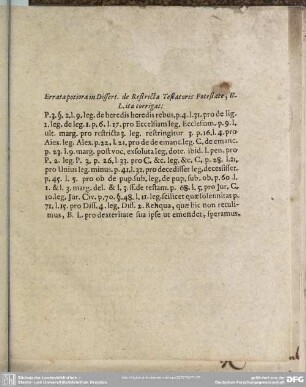 Errata potiora in Dissert. de Restricta Testatoris Potestate, B.
L. ita corrigat:
P. 3. §. 2. l. 9. leg. de heredis heredis rebus, p. 4. l. 31. pro de lig.
2. leg. de leg. 2. p. 6. l. 37. pro Eccelium leg. Ecclesium. p. 9. l.
ult. marg. pro restricta 3. leg. restringitur 3. p. 16. l. 4. pro
Aiex. leg. Alex. p. 22. l. 21. pro de de emanc leg. de emanc. C.
p. 23. l. 9. marg. post voc. exsoluta leg. dote. ibid. l. pen. pro
P. 2. leg. P. 3. p. 26. l. 33. pro C. &c. leg. &c. C. p. 28. l. 21.
pro Unius leg. minus. p. 41. l. 32. pro decedisser leg. decessisset.
p. 45. l. 5. pro ob de pup. sub. leg. de pup. sub. ob. p. 60. l.
2. & l. 3. marg. del. & l. 3. ff. de testam. p. 68. l. 5. pro Jur. C.
10. leg. Jur. Civ. p. 70. §. 48. l. 11. leg. scilicet quæ solennitas p.
71. l. 15. pro Diss. 4. leg. Diss. 2. Reliqua, quæ hic non retuli-
mus, B. L. pro dexteritate sua ipse ut emendet, speramus.